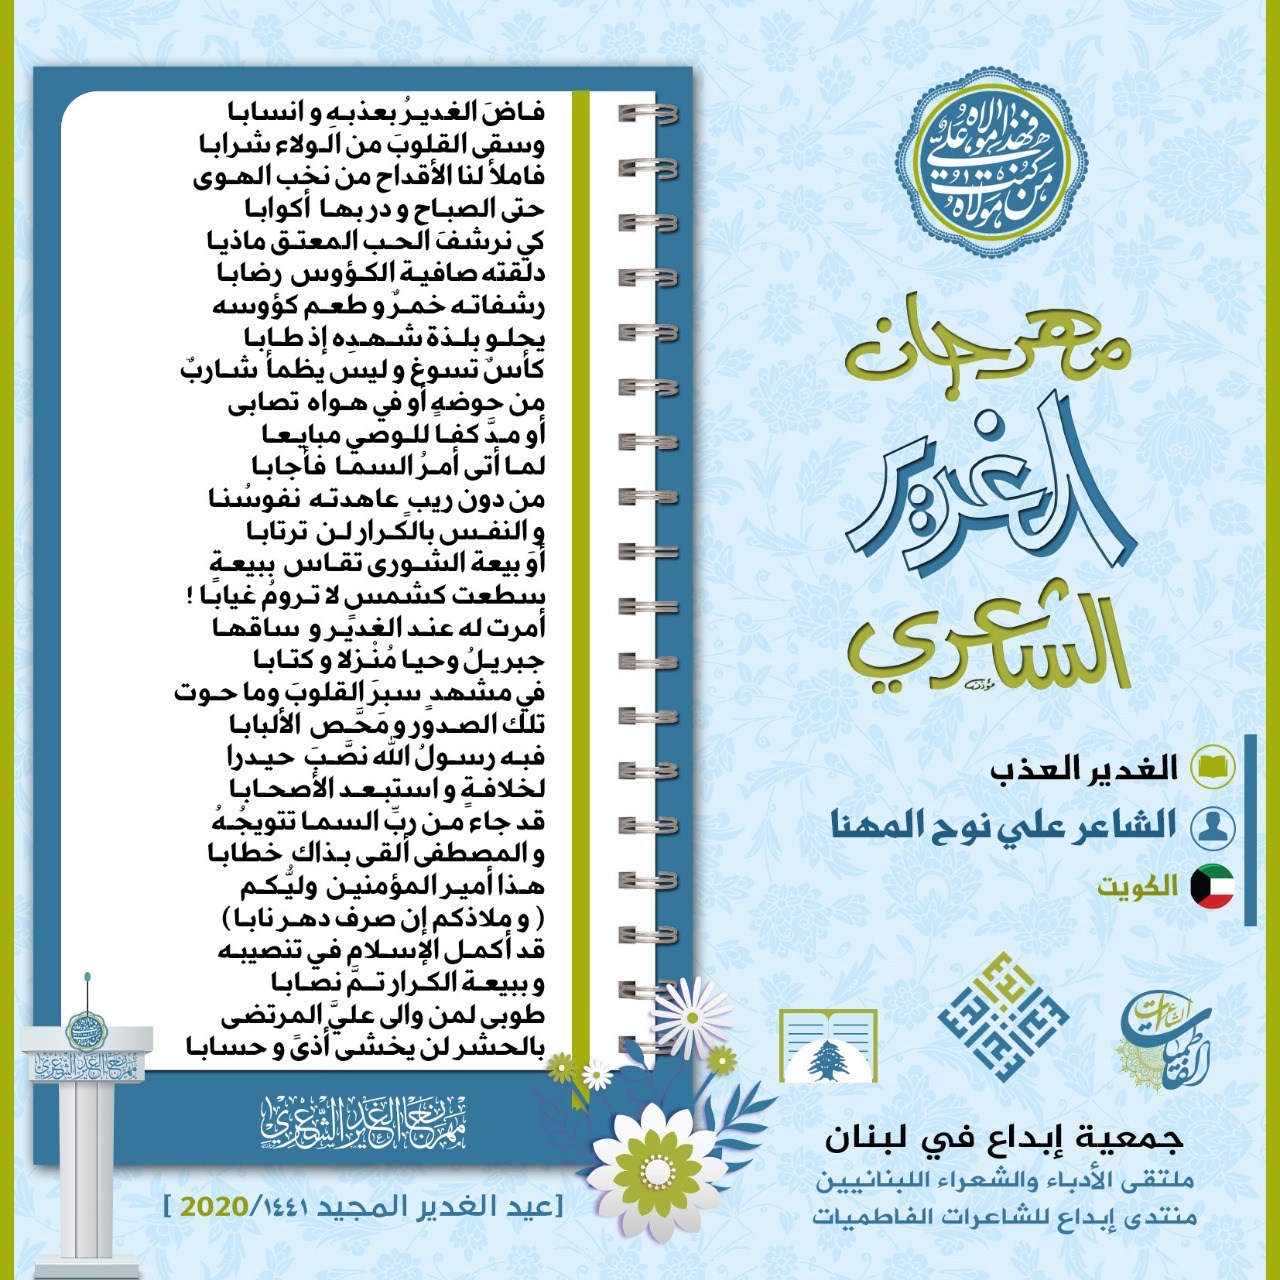 من كنت مولاه فهذا علي مولاه
مهرجان
الغدير
الشاعري
الغدير العذب
الشاعر علي نوح المهنا
الكويت
فاضَ الغديرُ بعذبهِ و انسابا
وسقى القلوبَ من الولاء شرابا
فاملأ لنا الأقداح من نخب الهوى
حتى الصباح و در بها أكوابا
كي نرشفَ الحب المعتق ماذيا
دلقته صافية الكؤوس رضابا
رشفاته خمرٌ و طعم كؤوسه
يحلو بلذة شهدِه إذ طابا
كأسٌ تسوغ و ليس يظمأ شاربٌ
من حوضهِ أو في هواه تصابى
أو مدَّ كفا للوصي مبايعا
لما أتى أمرُ السما فأجابا
من دون ريبٍ عاهدته نفوسُنا
و النفس بالكرار لن ترتابا
أوَ بيعة الشورى تقاس ببيعةٍ
سطعت كشمسٍ لا ترومُ غيابا !
أمرت له عند الغدير و ساقها
جبريلُ وحيا مُنْزلا و كتابا
في مشهدٍ سبرَ القلوبَ وما حوت
تلك الصدور و مَحَّص الألبابا
فبه رسولُ الله نصَّبَ حيدرا
لخلافةٍ و استبعد الأصحابا
قد جاء من ربِّ السما تتويجُهُ
و المصطفى ألقى بذاك خطابا
هذا أمير المؤمنين وليُّكم
( و ملاذكم إن صرف دهر نابا )
قد أكمل الإسلام في تنصيبه
و ببيعة الكرار تمَّ نصابا
طوبى لمن والى عليَّ المرتضى
بالحشر لن يخشى أذىً و حسابا
مهرجان الغدير الشعري
[عيد الغدير المجيد ١٤٤١/2020 ]
جمعية إبداع في لبنان
ملتقى الأدباء والشعراء اللبنانيين
منتدى إبداع للشاعرات الفاطميات